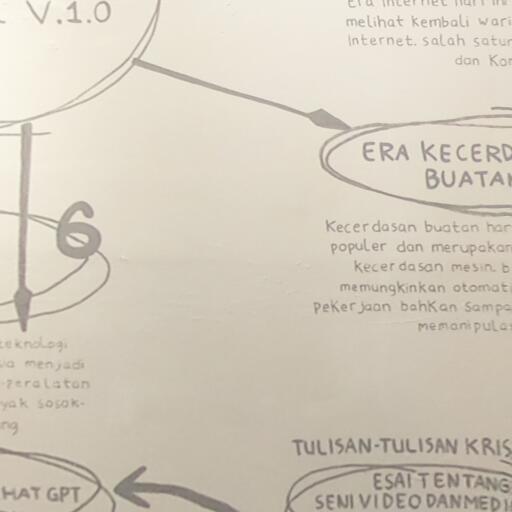 V.1.0
melihat kembali wari
Internet. salah satun
dan Kor
ERA KECERD
BUATAN
Kecerdasan buatan har
populer dan merupakan
kecerdasan mesin. b
memungkinkan otomati
pekerjaan bahkan sampa
memanipulas
6
teknologi
menjadi
-peralatan
yak sosok-
ng
TULISAN-TULISAN KRIS
HAT GPT
ESAI TENTANG
SENI VIDEO DAN MEDI